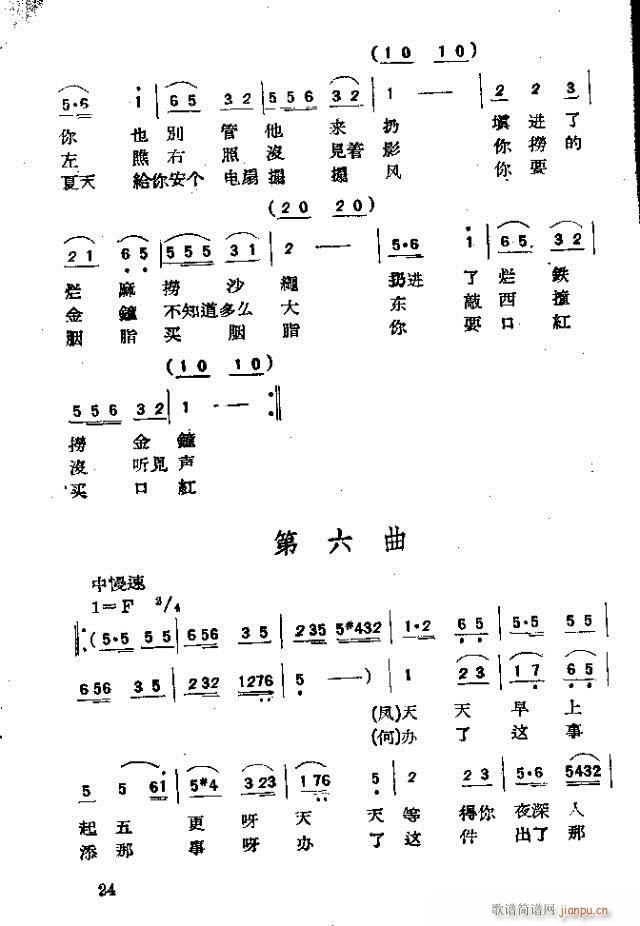 (1 0 1 0)
5·6 i 6 5 3 2 5 5 6 3 2 1 — — 2 2 3
你 也 別 管 他 来 扔 填 进 了
左 瞧 右 照 沒 見 着 影 你 捞 的
夏天 給你 安个 电扇 搧 搧 风 你 要
(2 0 2 0)
2 1 6 5 5 5 5 3 1 2 — — 5·6 i 6 5 3 2
烂 麻 捞 沙 繩 扔进 了 烂 鉄
金 鐘 不知道多么 大 东 敲 西 撞
胭 脂 买 胭 脂 你 要 口 紅
(1 0 1 0)
5 5 6 3 2 1 — — :||
捞 金 鐘
沒 听見 声
买 口 紅
第 六 曲
中慢速
1=F 2/4
(5·5 5 5 6 5 6 3 5 2 3 5 5#4 3 2 1·2 6 5 5·5 5
6 5 6 3 5 2 3 2 1 2 7 6 5 — —) 1 2 3 1 7 6 5
(凤)天 天 早 上
(何)办 了 这 事
5 5 6 i 5#4 3 2 3 1 7 6 5 2 2 3 5·6 5 4 3 2
起 五 更 呀 天 天 等 得你 夜深 人
添 那 事 呀 办 了 这 件 出了 那
24
歌谱简谱网 jianpu.cn